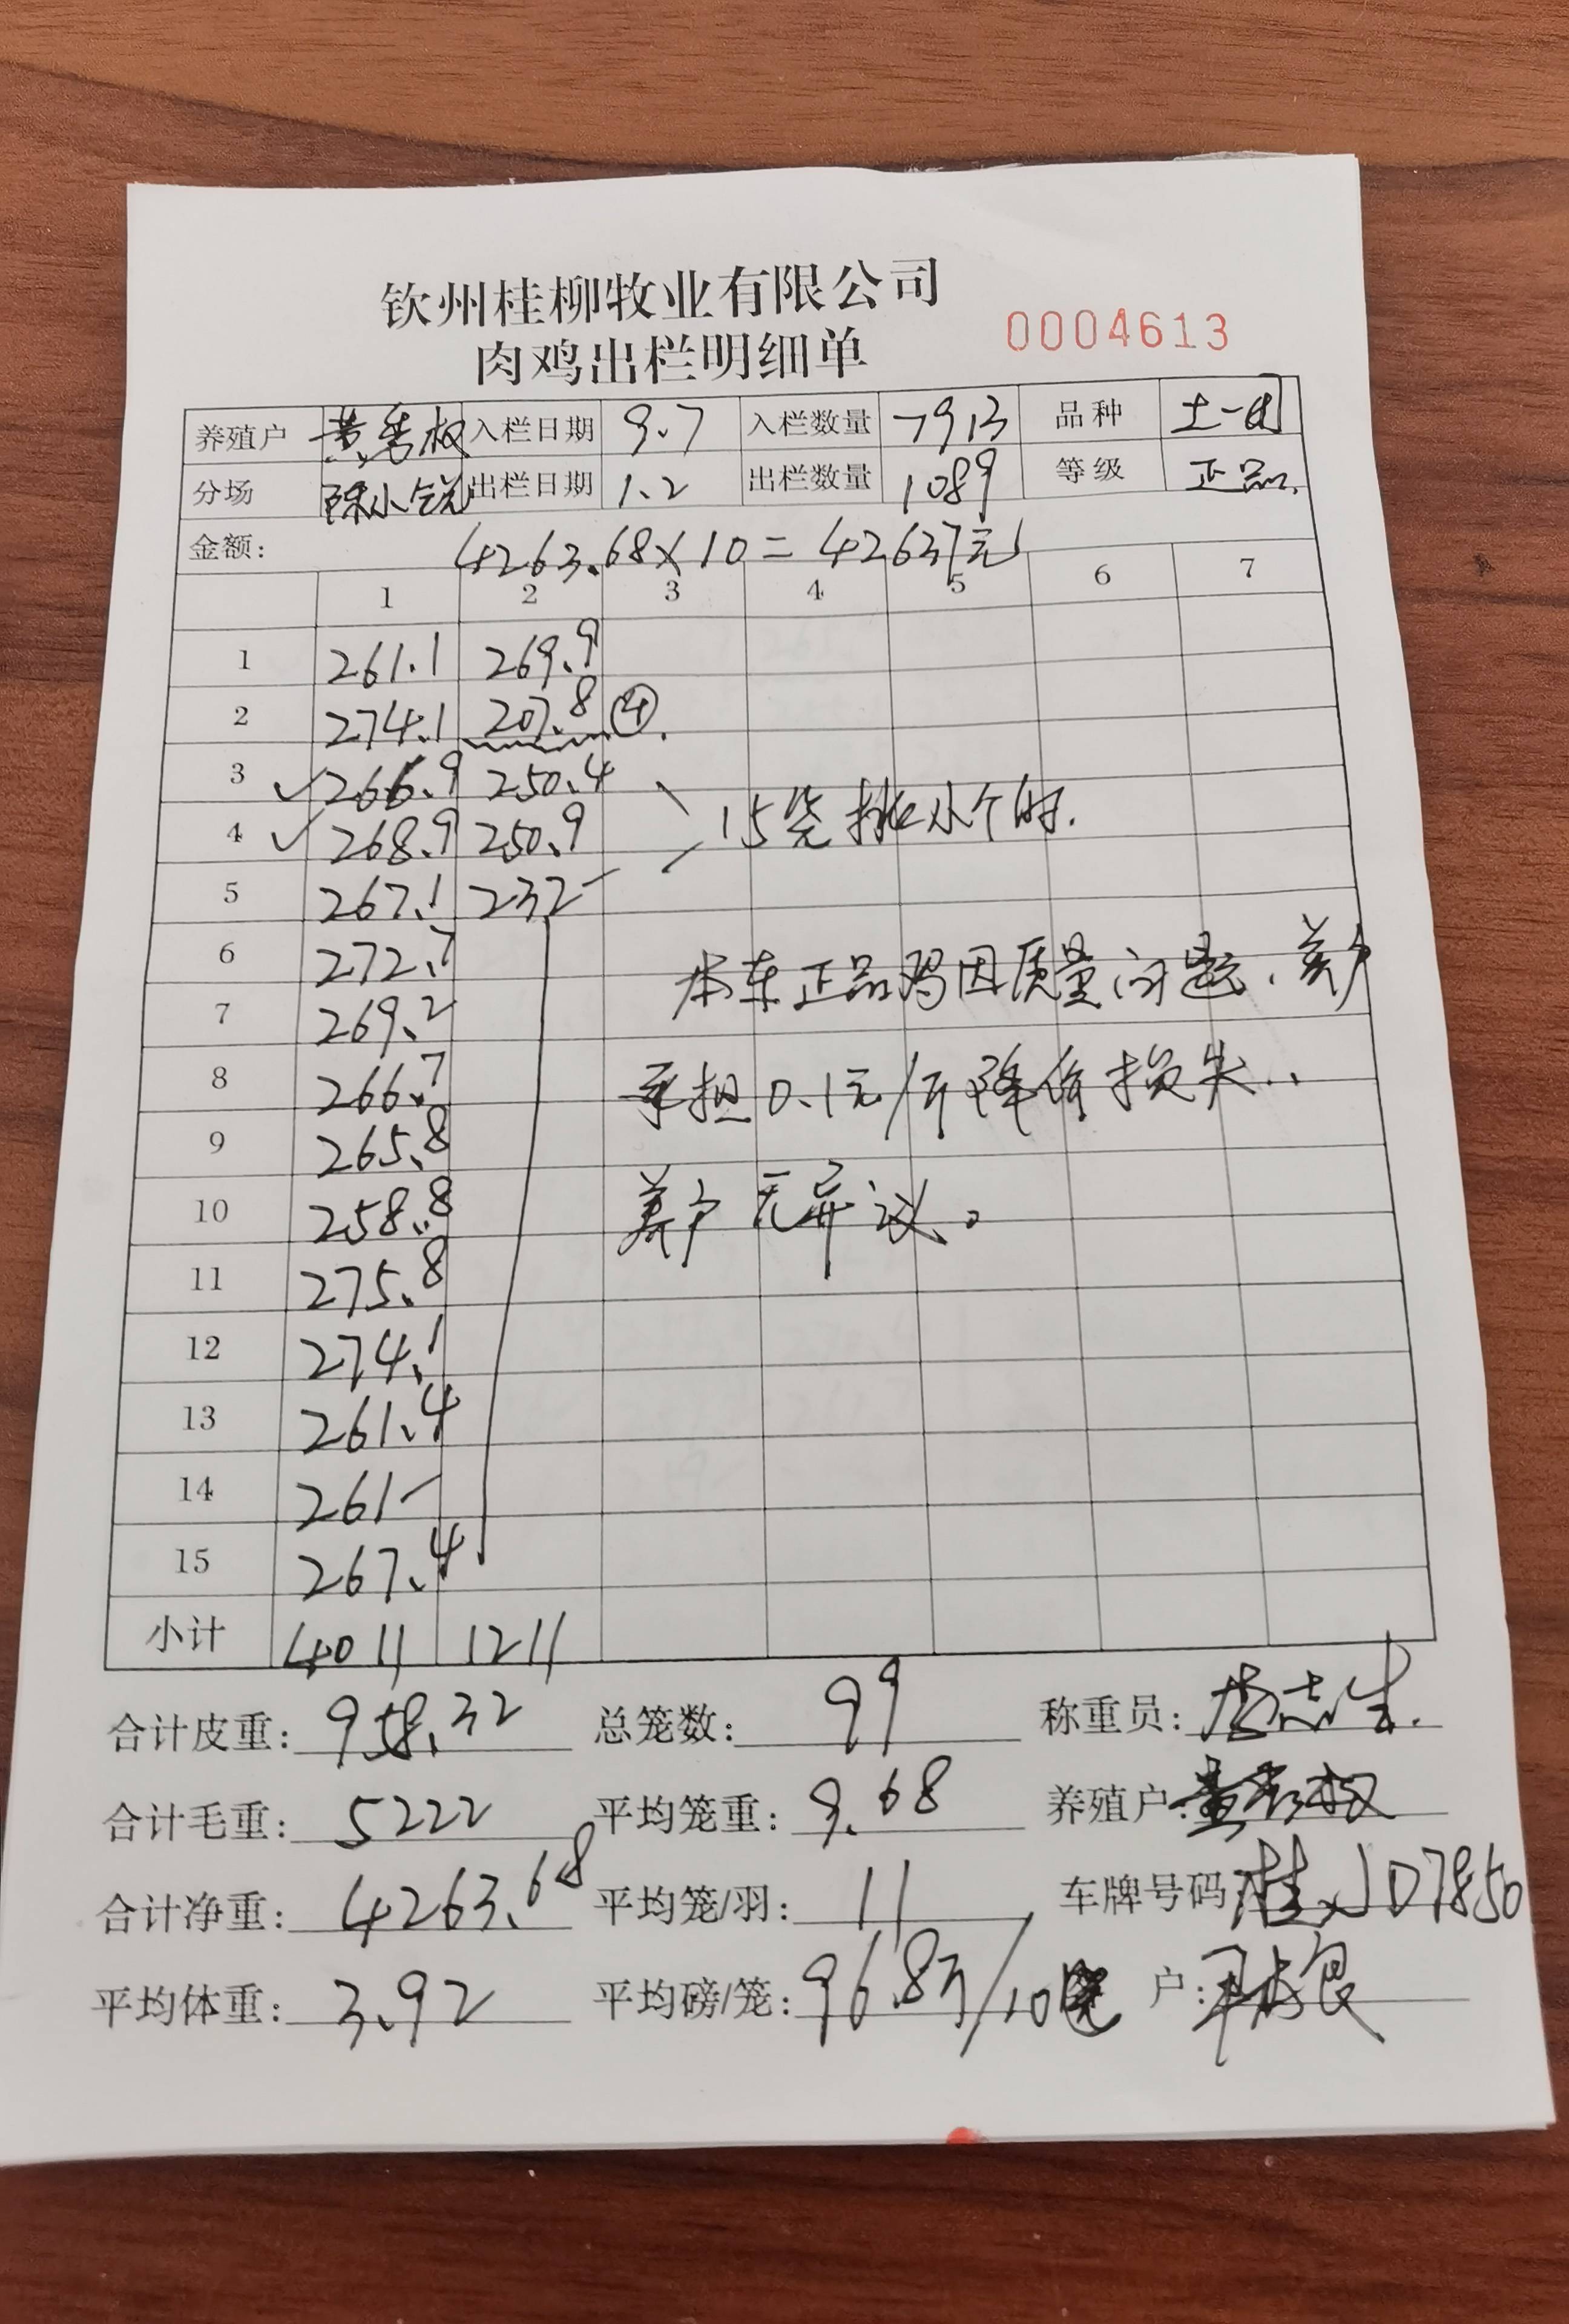 钦州桂柳牧业有限公司
肉鸡出栏明细单 0004613
养殖户 黄秀权 入栏日期 9.7 入栏数量 7913 品种 土一
分场 陈小锐 出栏日期 1.2 出栏数量 1089 等级 正品.
金额: 4263.68×10=42637元
1 2 3 4 5 6 7
1 261.1 269.9
2 274.1 207.8 ④.
3 ✓266.9 250.4
4 ✓268.9 250.9 15笼挑小个的.
5 267.1 232-
6 272.7 本车正品鸡因质量问题、养户
7 269.2
8 266.7 承担0.1元/斤降价损失..
9 265.8
10 258.8 养户无异议。
11 275.8
12 274.1
13 261.4
14 261-
15 267.4
小计 4011 1211
合计皮重: 958.32 总笼数: 99 称重员: 志生.
合计毛重: 5222 平均笼重: 9.68 养殖户: 黄秀权
合计净重: 4263.68 平均笼/羽: 11 车牌号码 桂JD7850
平均体重: 3.92 平均磅/笼: 96.8斤/10笼 户: